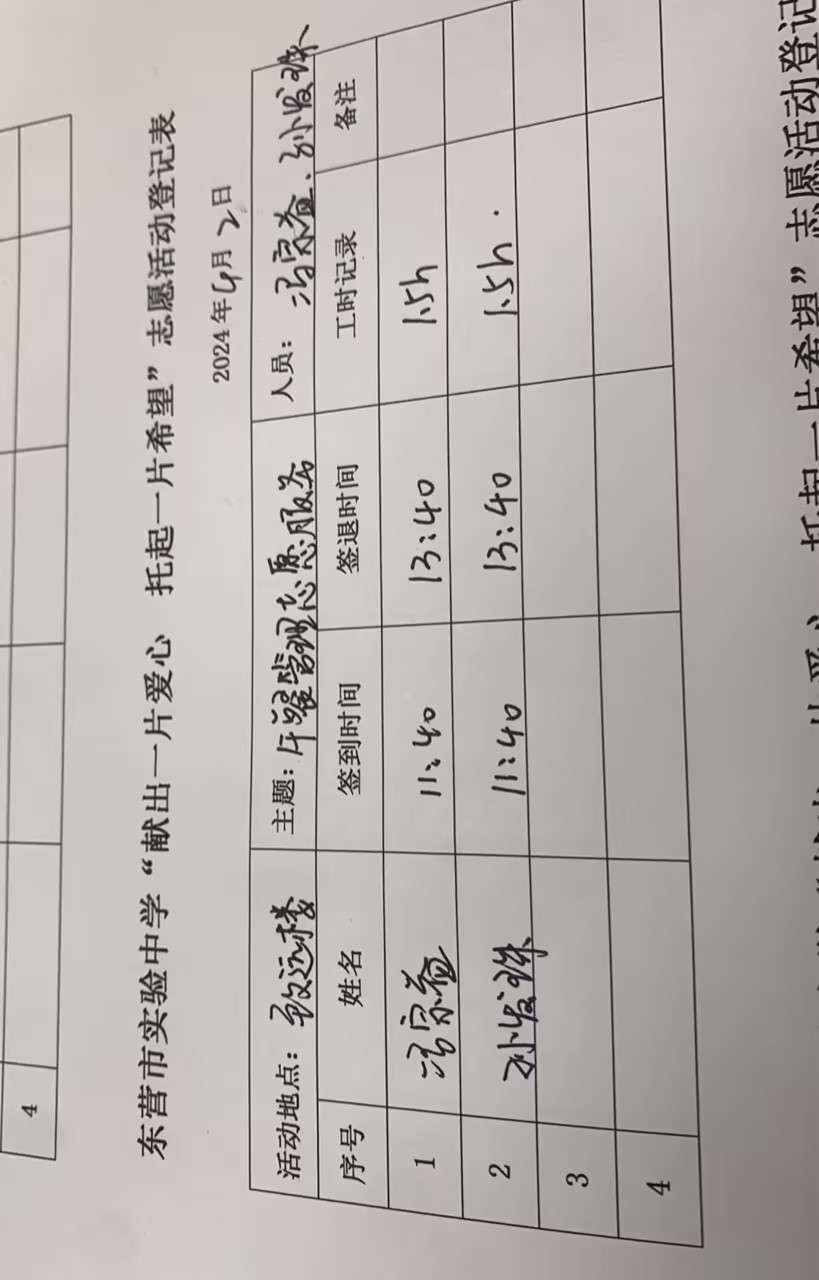 4
东营市实验中学“献出一片爱心 托起一片希望”志愿活动登记表
2024年4月2日
活动地点：致远楼 主题：午餐管理志愿服务 人员：冯宗益、孙发珠
序号 姓名 签到时间 签退时间 工时记录 备注
1 冯宗益 11:40 13:40 1.5h
2 孙发珠 11:40 13:40 1.5h.
3
4
托起一片希望”志愿活动登记